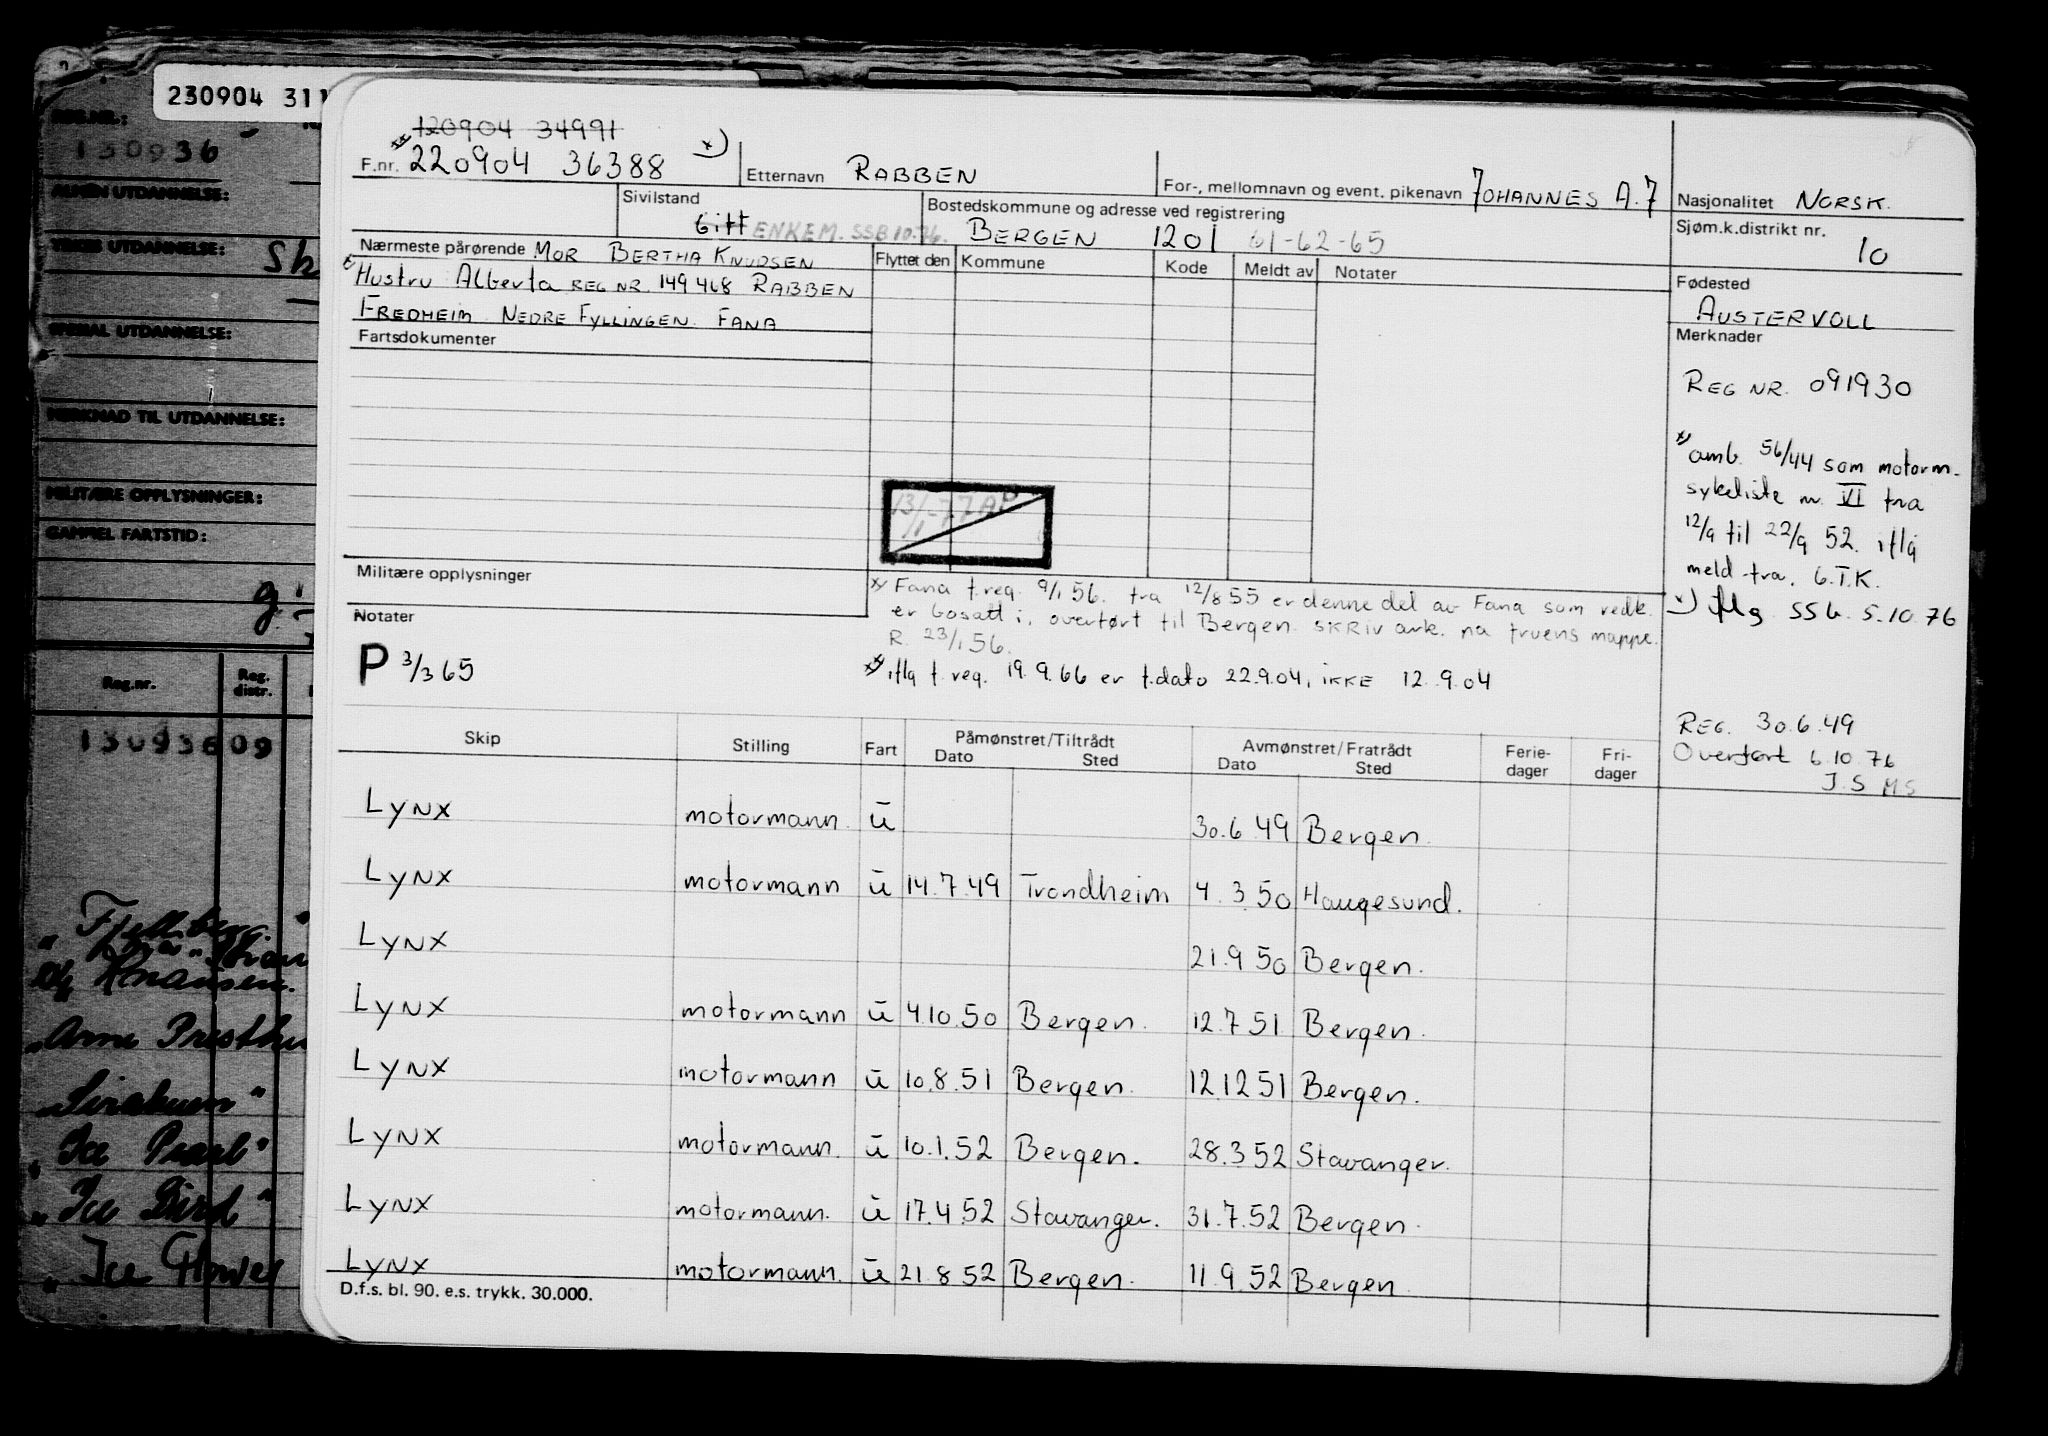 230904 311
REG.NR.:
130936
ALMEN UTDANNELSE:
YRKES UTDANNELSE: Sk
SPESIAL UTDANNELSE:
MERKNAD TIL UTDANNELSE:
MILITÆRE OPPLYSNINGER:
GAMMEL FARTSTID:
Reg.nr. Reg. distr.
130936 09
"Fjellberg."
"Arne Presthu
"Sirakuen"
"Ice Pearl"
"Ice Bird"
"Ice Flower
120904 34991
F.nr. 220904 36388 x)
Etternavn RABBEN
For-, mellomnavn og event. pikenavn JOHANNES A. J
Nasjonalitet NORSK.
Sivilstand
Gift ENKEM. SSB 10.76.
Bostedskommune og adresse ved registrering
BERGEN 1201 61-62-65
Sjøm.k.distrikt nr.
10
Nærmeste pårørende MOR BERTHA KNUDSEN
Hustru Alberta REG NR. 149468 RABBEN
FREDHEIM NEDRE FYLLINGEN. FANA
Flyttet den Kommune Kode Meldt av Notater
Fødested
AUSTERVOLL
Fartsdokumenter
Merknader
REG NR. 091930
x) omb. 56/44 som motorm.
sykeliste nr. VI fra
12/9 til 22/9 52. iflg
meld fra. G.T.K.
x) iflg. SSB. 5.10.76
13/1-77 AP
Militære opplysninger
x) Fana f.reg. 9/1 56. fra 12/8 55 er denne del av Fana som vedk.
er bosatt i, overført til Bergen. SKRIV ark. på fruens mappe.
R. 23/1 56.
Notater
P 3/3 65
xx) iflg f. reg. 19.9.66 er f.dato 22.9.04, IKKE 12.9.04
REG. 30.6.49
Overført 6.10.76
J.S MS
Skip Stilling Fart Påmønstret/Tiltrådt Avmønstret/Fratrådt Ferie- Fri-
Dato Sted Dato Sted dager dager
LYNX motormann. ū 30.6.49 Bergen.
LYNX motormann ū 14.7.49 Trondheim 4.3.50 Haugesund.
LYNX 21.9 50 Bergen.
LYNX motormann ū 4.10.50 Bergen. 12.7 51 Bergen.
LYNX motormann ū 10.8.51 Bergen. 12.12 51 Bergen.
LYNX motormann. ū 10.1.52 Bergen. 28.3 52 Stavanger.
LYNX motormann. ū 17.4 52 Stavanger. 31.7.52 Bergen.
LYNX motormann. ū 21.8 52 Bergen. 11.9.52 Bergen
D.f.s. bl. 90. e.s. trykk. 30.000.